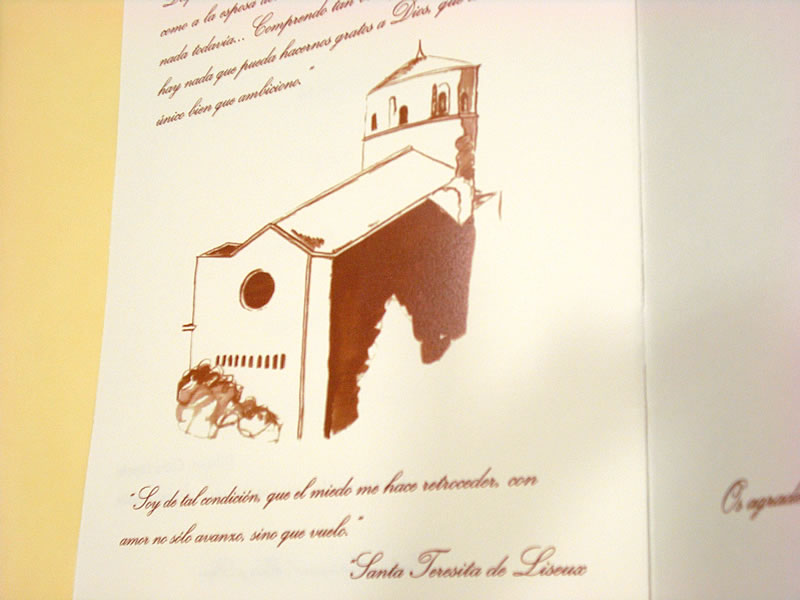 como a la esposa
nada todavía... Comprendo tan
hay nada que pueda hacernos gratos a Dios, que
único bien que ambiciono."
"Soy de tal condición, que el miedo me hace retroceder, con
amor no sólo avanzo, sino que vuelo."
"Santa Teresita de Liseux
Os agrada